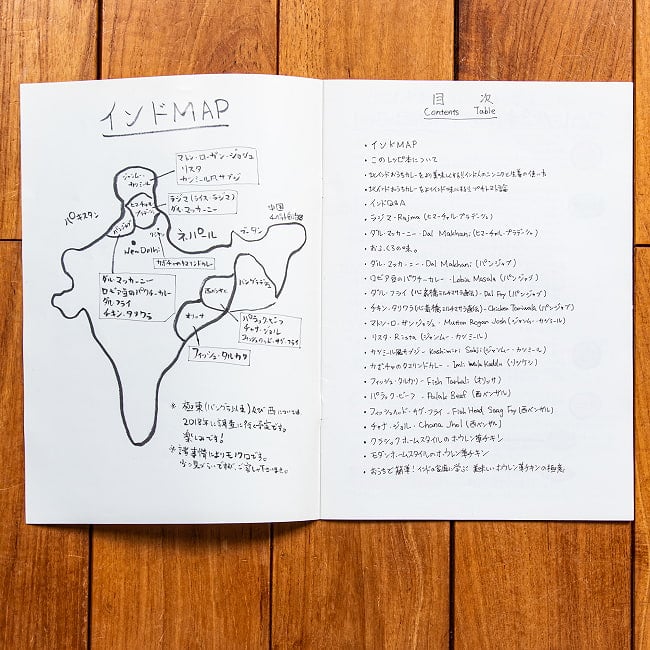 インドMAP
ジャンムー・カシミール
マトン・ローガン・ジョシュ
リスタ
カシミール風サブジ
ヒマーチャル・プラデーシュ
ラジマ(ライス・ラジマ)
ダル・マッカーニー
パキスタン
パンジャブ
New Delhi
ネパール
ブータン
中国
かぼちゃのタマリンドカレー
ダル・マッカーニー
ロビア豆のパクチーカレー
ダルフライ
チキン・タリワラ
西ベンガル
バングラデシュ
オリッサ
パラック・ビーフ
チャナ・ジョル
フィッシュヘッド・サグ・フライ
フィッシュ・タルカリ
※ 極東(バングラ以東)及び西については
2018年に調査に行く予定です。
楽しみです!
※ 諸事情によりモノクロです。
目 次
Contents Table
・インドMAP
・このレシピ本について
・インドQ&A
・ラジマ・Rajma (ヒマーチャル・プラデーシュ)
・ダル・マッカーニー・Dal Makhani (ヒマーチャル・プラデーシュ)
・おふくろの味。
・ダル・マッカーニー・Dal Makhani (パンジャブ)
・ロビア豆のパクチーカレー・Lobia Masala (パンジャブ)
・ダル・フライ - Dal Fry (パンジャブ)
・チキン・タリワラ - Chicken Tariwala (パンジャブ)
・マトン・ローガンジョシュ・Mutton Rogan Josh (ジャンムー・カシミール)
・リスタ・Rista (ジャンムー・カシミール)
・カシミール風サブジー・Kashmiri Sabji (ジャンムー・カシミール)
・かぼちゃのタマリンドカレー・Imli Wala Kaddu
・フィッシュ・タルカリー・Fish Tarkali (オリッサ)
・パラック・ビーフ・Palak Beef (西ベンガル)
・フィッシュヘッド・サグ・フライ・Fish Head Saag Fry (西ベンガル)
・チャナ・ジョル・Chana Jhol (西ベンガル)
・クラシックホームスタイルのホウレン草チキン
・モダンホームスタイルのホウレン草チキン
・おうちで簡単!インドの家庭に学ぶ 美味しいホウレン草チキンの極意